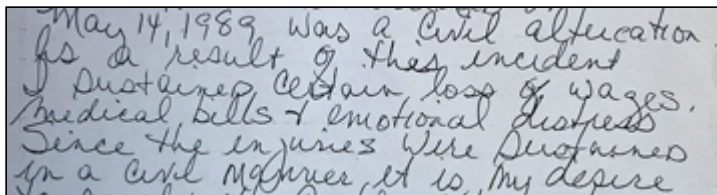 May 14, 1989, was a Civil altercation.
As a result of this incident
I sustained Certain loss of wages,
medical bills & emotional distress
Since the injuries were sustained
in a Civil manner, it is my desire